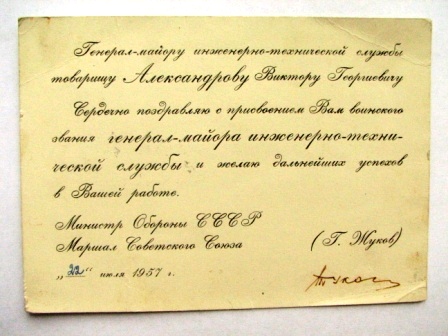 Генерал-майору инженерно-технической службы
товарищу Александрову Виктору Георгиевичу
Сердечно поздравляю с присвоением Вам воинского
звания генерал-майора инженерно-техни-
ческой службы и желаю дальнейших успехов
в Вашей работе.
Министр Обороны СССР
Маршал Советского Союза (Г. Жуков)
„22“ июля 1957 г.